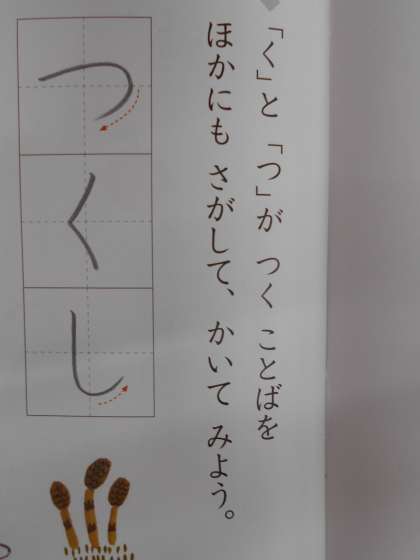 「く」と「つ」が つく ことばを
ほかにも さがして、かいて みよう。
つくし